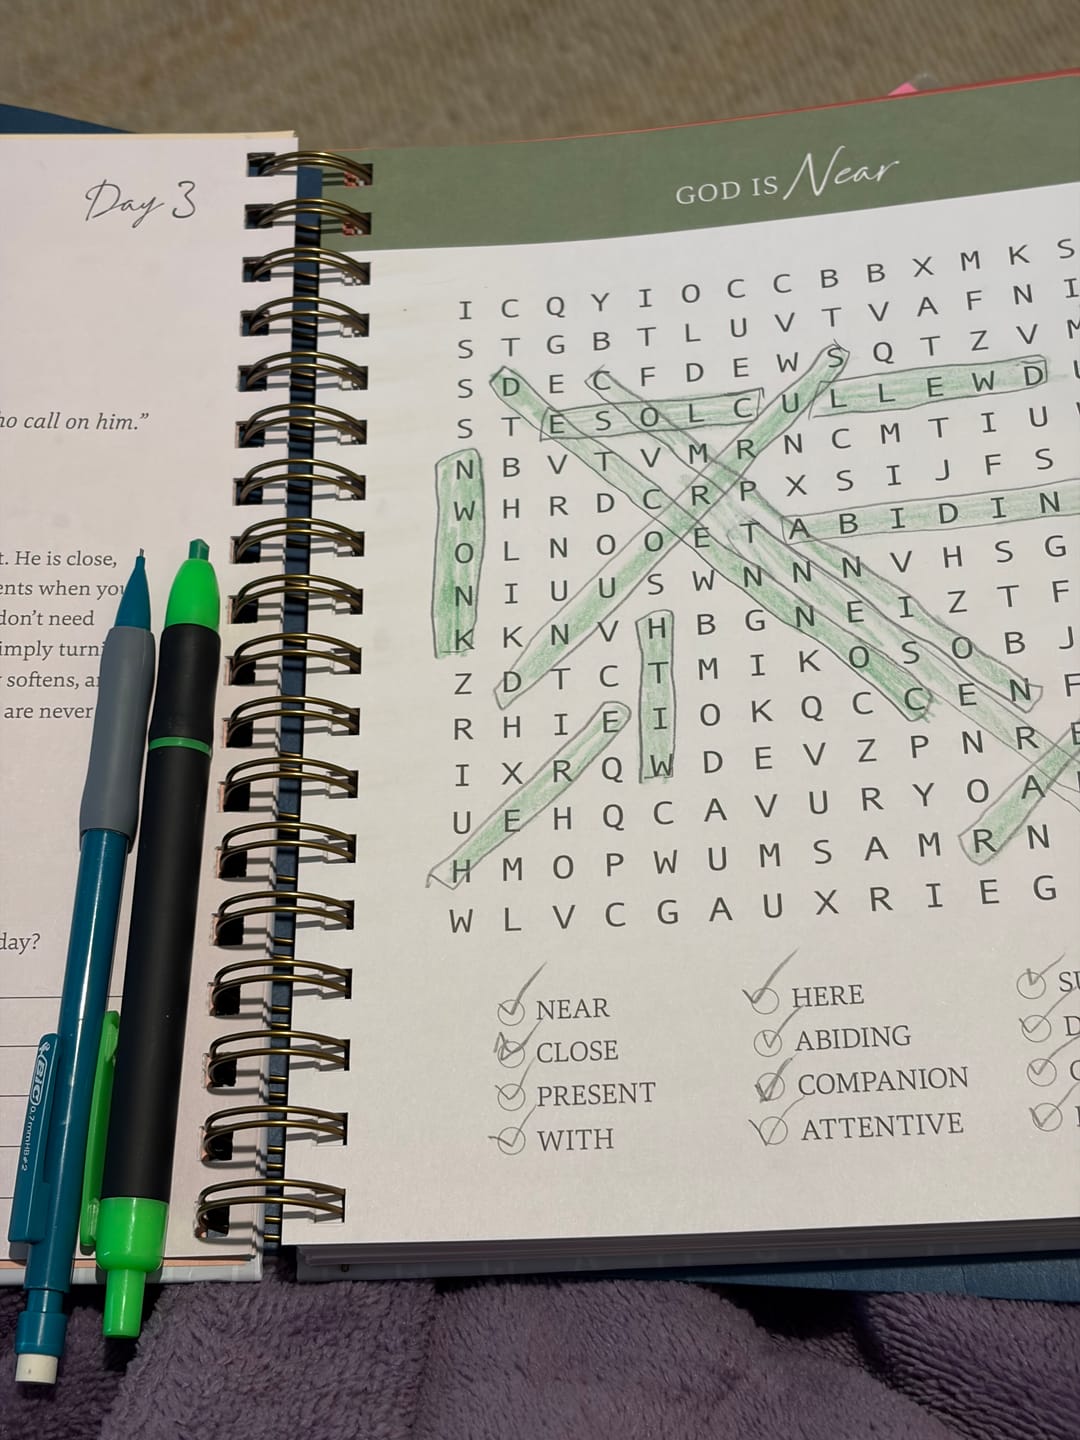 Day 3
GOD IS Near
ho call on him.”
t. He is close,
ents when you
don’t need
imply turni
softens, a
are never
day?
I C Q Y I O C C B B X M K S
S T G B T L U V T V A F N I
S D E C F D E W S Q T Z V M
S T E S O L C U L L E W D U
N B V T V M R N C M T I U
W H R D C R P X S I J F S
O L N O O E T A B I D I N
N I U U S W N N N V H S G
K K N V H B G N E I Z T F
Z D T C T M I K O S O B J
R H I E I O K Q C C E N F
I X R Q W D E V Z P N R E
U E H Q C A V U R Y O A
H M O P W U M S A M R N
W L V C G A U X R I E G
NEAR
CLOSE
PRESENT
WITH
HERE
ABIDING
COMPANION
ATTENTIVE
SU
D
BIC 0.7mm HB #2